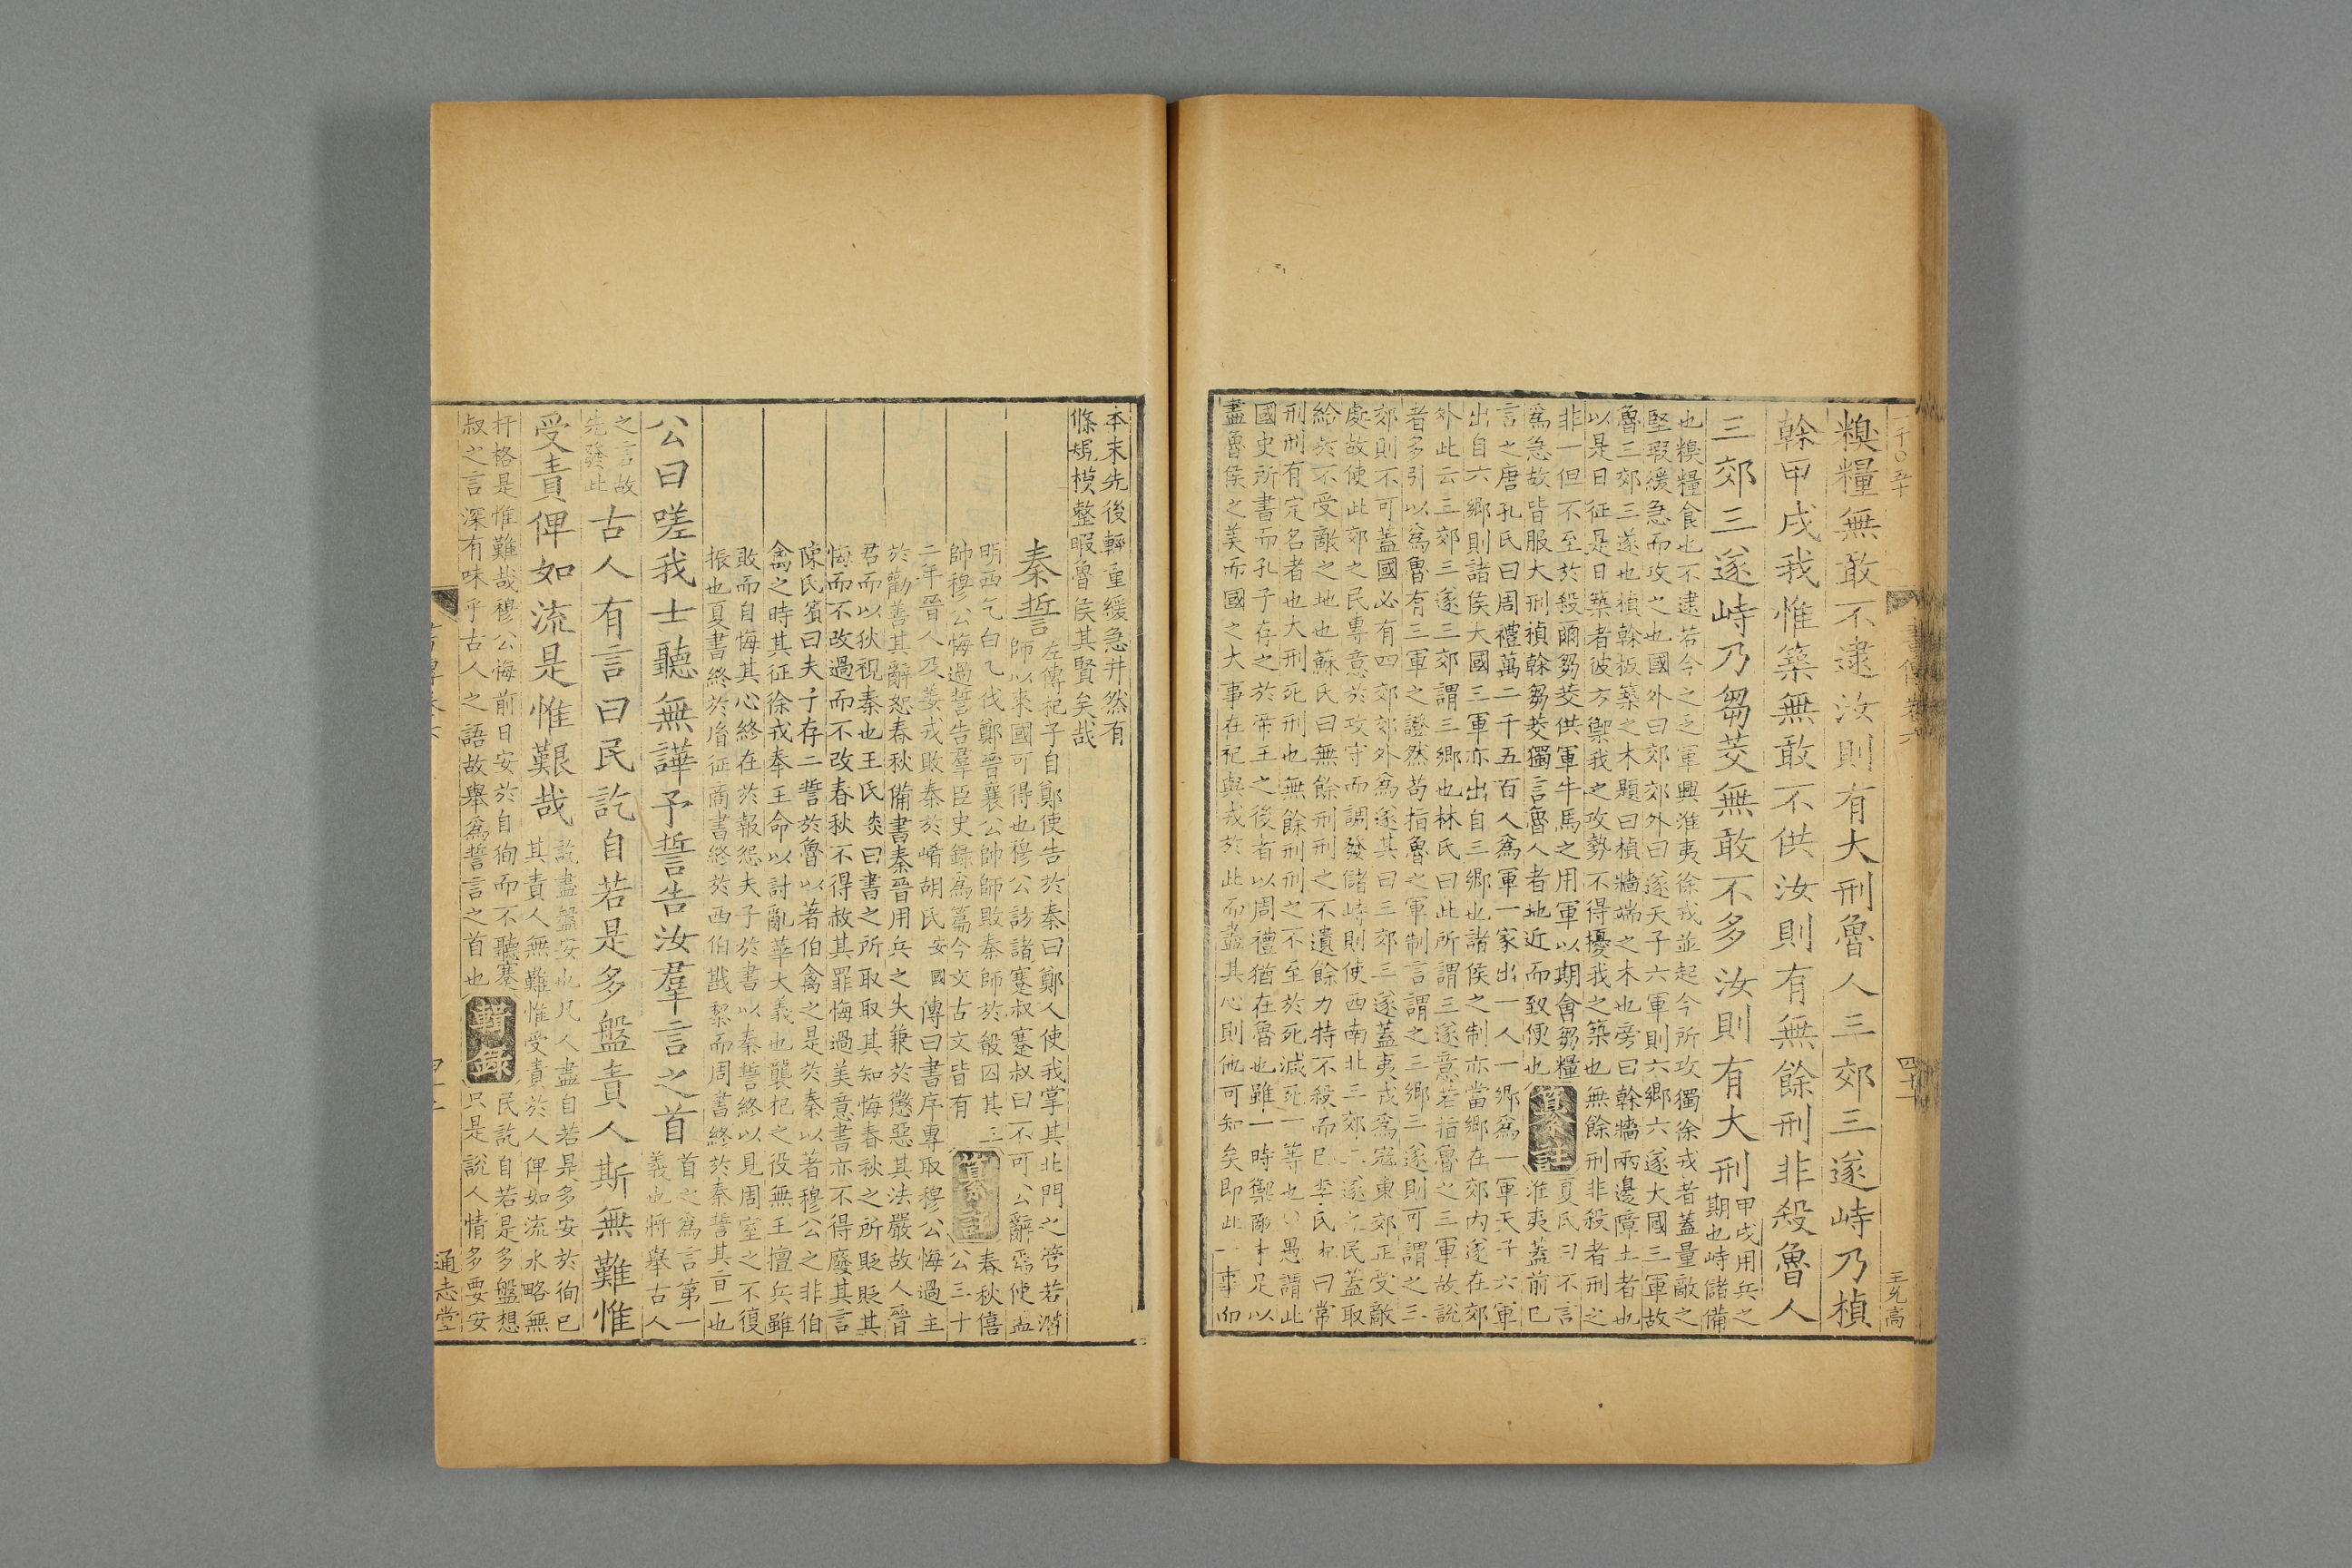 糗糧無敢不逮汝則有大刑魯人三郊三遂峙乃楨
榦甲戌我惟築無敢不供汝則有無餘刑非殺魯人
三郊三遂峙乃芻茭無敢不多汝則有大刑
甲戌用兵之
期也峙儲備
也糗糧食也不逮若今之乏軍興淮夷徐戎並起今所攻獨徐戎者蓋量敵之
堅瑕緩急而攻之也國外曰郊郊外曰遂天子六軍則六鄉六遂大國三軍故
魯三郊三遂也楨榦板築之木題曰楨牆端之木也旁曰榦牆兩邊障土者也
以是日征是日築者彼方禦我之攻勢不得擾我之築也無餘刑非殺者刑之
非一但不至於殺爾芻茭供軍牛馬之用軍以期會芻糧
爲急故皆服大刑楨榦芻茭獨言魯人者地近而致便也
纂註
夏氏曰不言
淮夷蓋前已
言之唐孔氏曰周禮萬二千五百人爲軍一家出一人一鄉爲一軍天子六軍
出自六鄉則諸侯大國三軍亦出自三鄉也諸侯之制亦當鄉在郊內遂在郊
外此云三郊三遂三郊謂三鄉也林氏曰此所謂三遂意若指魯之三軍故說
者多引以爲魯有三軍之證然苟指魯之軍制言謂之三鄉三遂則可謂之三
郊則不可蓋國必有四郊郊外爲遂其曰三郊三遂蓋夷戎爲寇東郊正受敵
處故使此郊之民專意於攻守而調發儲峙則使西南北三郊三遂之民蓋取
給於不受敵之地也蘇氏曰無餘刑刑之不遺餘力特不殺而已李氏杞曰常
刑刑有定名者也大刑死刑也無餘刑刑之不至於死滅死一等也愚謂此
國史所書而孔子存之於帝王之後者以周禮猶在魯也雖一時禦敵才足以
盡魯侯之美而國之大事在祀與戎於此而盡其心則他可知矣即此一事而
書傳卷六
四十一
王允高
本末先後輕重緩急井然有
條規模整暇魯侯其賢矣哉
秦誓
左傳杞子自鄭使告於秦曰鄭人使我掌其北門之管若潛
師以來國可得也穆公訪諸蹇叔蹇叔曰不可公辭焉使孟
明西乞白乙伐鄭晉襄公帥師敗秦師於殽囚其三
帥穆公悔過誓告羣臣史錄爲篇今文古文皆有
纂註
春秋僖
公三十
二年晉人及姜戎敗秦於崤胡氏安國傳曰書序專取穆公悔過主
於勸善其辭恕春秋備書秦晉用兵之失兼於懲惡其法嚴故人晉
君而以狄視秦也王氏炎曰書之所取取其知悔春秋之所貶貶其
悔而不改過而不改春秋不得赦其罪悔過美意書亦不得廢其言
陳氏賓曰夫子存二誓於魯以著伯禽之是於秦以著穆公之非伯
禽之時其征徐戎奉王命以討亂華大義也襲杞之役無王擅兵雖
敗而自悔其心終在於報怨夫子於書以秦誓終以見周室之不復
振也夏書終於胤征商書終於西伯戡黎而周書終於秦誓其音一也
公曰嗟我士聽無譁予誓告汝羣言之首
首之爲言第一
義也將舉古人
之言故
先發此
古人有言曰民訖自若是多盤責人斯無難惟
受責俾如流是惟艱哉
訖盡盤安也凡人盡自若是多安於徇已
其責人無難惟受責於人俾如流水略無
扞格是惟難哉穆公悔前日安於自徇而不聽蹇
叔之言深有味乎古人之語故舉爲誓言之首也
輯錄
民訖自若是多盤想
只是說人情多要安
通志堂